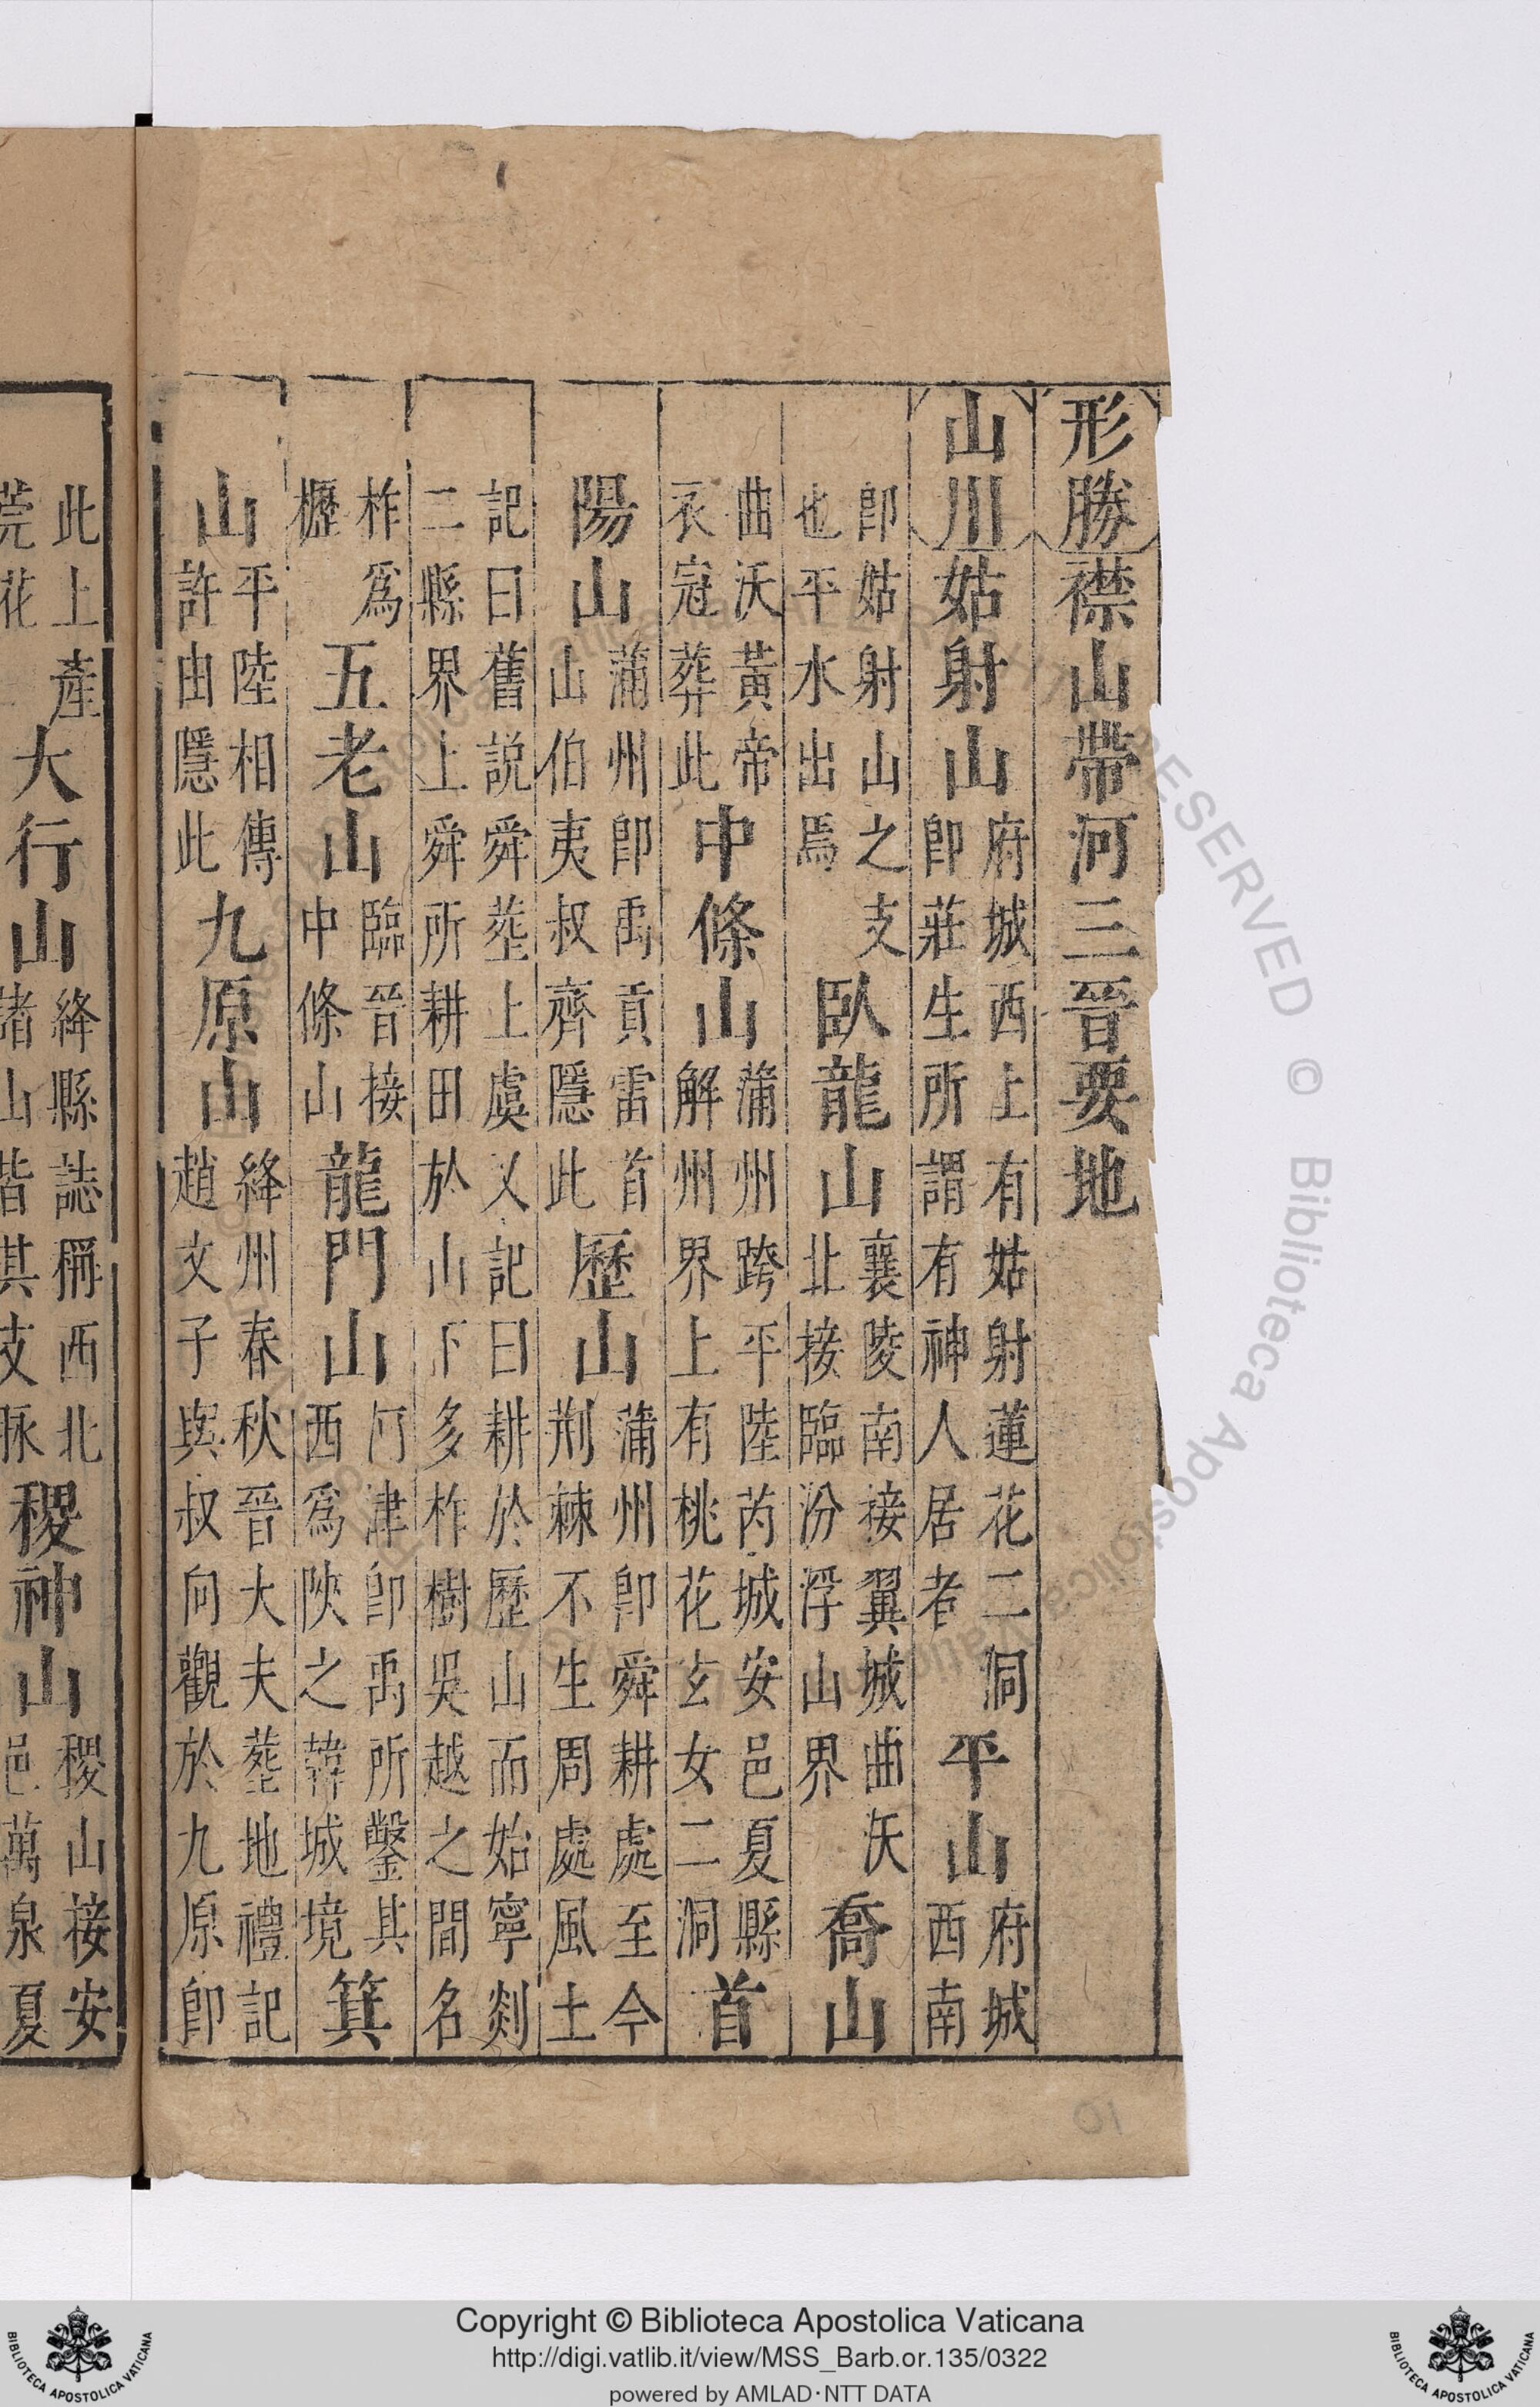 形勝襟山帶河三晉要地
山川姑射山府城西上有姑射蓮花二洞即莊生所謂有神人居者平山府城西南
即姑射山之支也平水出焉臥龍山襄陵南接翼城曲沃北接臨汾浮山界喬山
曲沃黃帝衣冠葬此中條山蒲州跨平陸芮城安邑夏縣解州界上有桃花玄女二洞首
陽山蒲州即禹貢雷首山伯夷叔齊隱此歷山蒲州即舜耕處至今荆棘不生周處風土
記曰舊説舜塟上虞又記曰耕於歷山而始寧剡二縣界上舜所耕田於山下多柞樹吳越之間名
柞爲櫪五老山臨晉接中條山龍門山河津即禹所鑿其西爲陝之韓城境箕
山平陸相傳許由隱此九原山絳州春秋晉大夫塟地禮記趙文子與叔向觀於九原即
此上產芫花大行山絳縣誌稱西北諸山皆其支脉稷神山稷山接安邑萬泉夏
Copyright © Biblioteca Apostolica Vaticana
http://digi.vatlib.it/view/MSS_Barb.or.135/0322
powered by AMLAD·NTT DATA
BIBLIOTECA APOSTOLICA VATICANA
BIBLIOTECA APOSTOLICA VATICANA